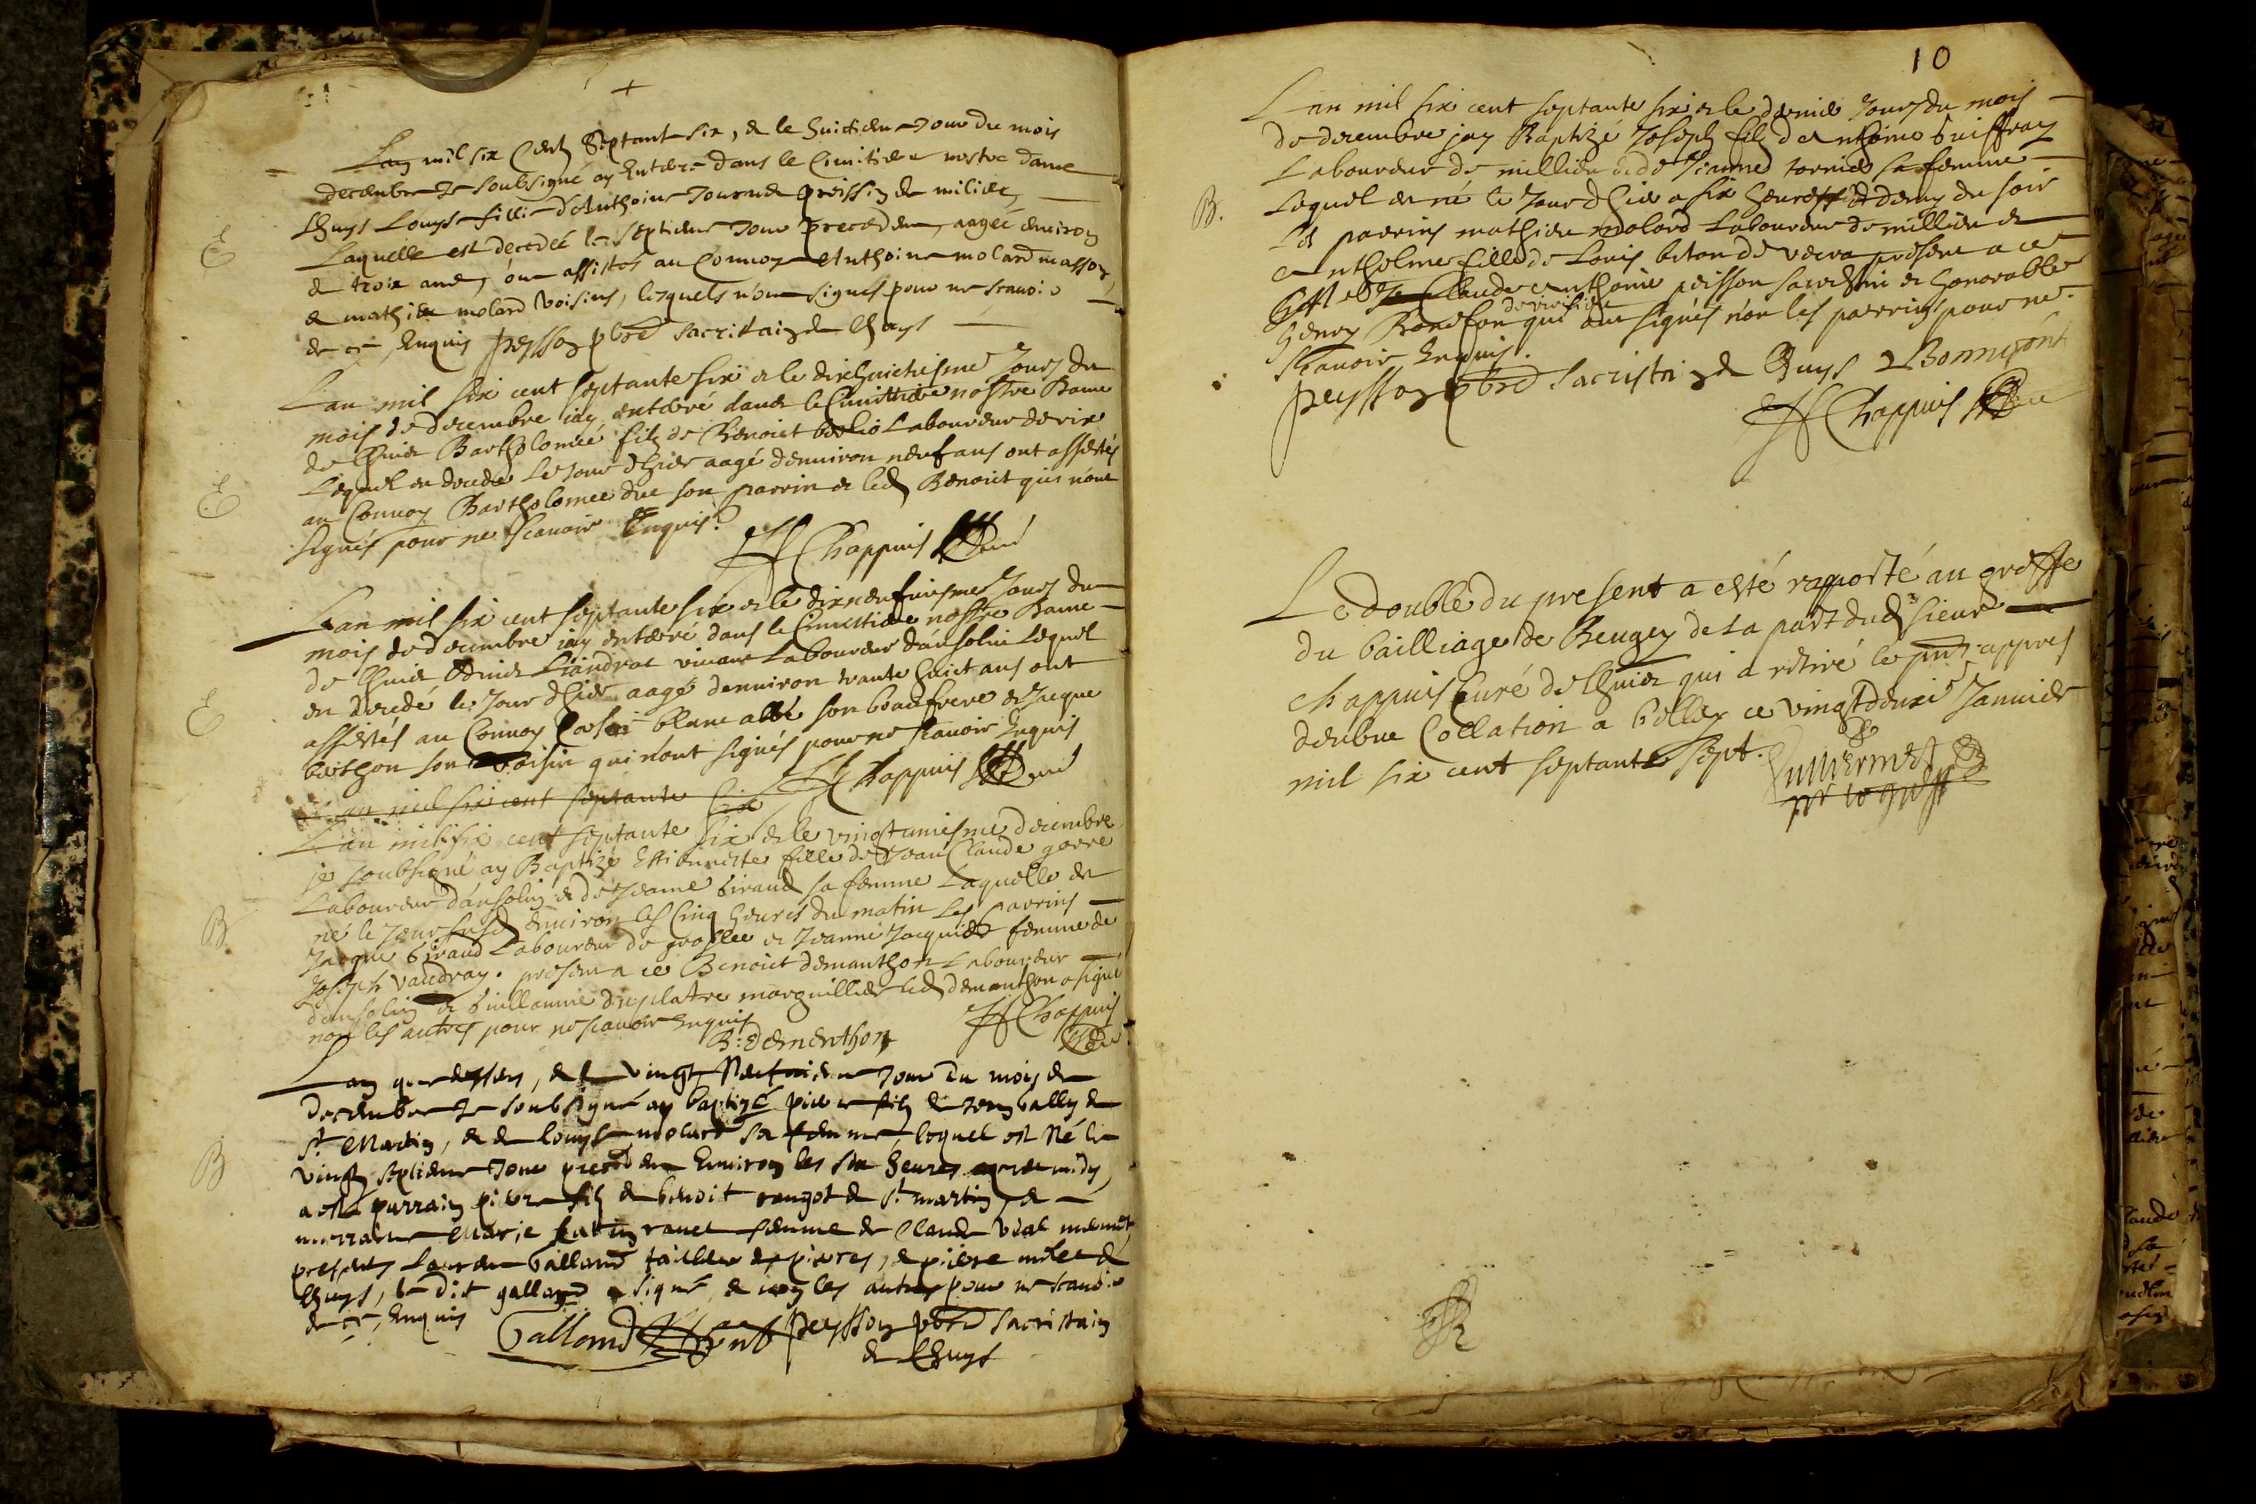 Lan mil six Cent Septant six, & le huictiem Jour du mois
decembre Je soubsigné ay Enterre dans le Cimitiere nostre dame
Lhuys Louyse fillie d'Anthoine Tournier de milieu,
Laquelle est decedeé le septiem Jour precedem, aageé environ
de trois ans, on assistés au Convoy Anthoine molard masson,
& mathieu molard voisins, lesquels n'on signés pour ne scavoir
de ce, Enquis peysson pbre sacristain de Lhuys
E
Lan mil six cent septante six & le dixhuictiesme Jours du
mois de decembre iay enterré dans le Cimittiere nostre Dame
de Lhuis Bartholomée filz de Benoict Laboureur de rix
Lequel en decedé le Jour dhier aagé denuiron neuf ans ont assistés
au Convoy Bartholomee duc son parrin & led Benoict qui nont
signés pour ne scauoir Enquis.
Chappuis
E
Lan mil six cent septante six & le dixneufuiesme Jours du
mois de decembre iay enterré dans le Cimittiere nostre Dame
de Lhuis Liaudrat vivant Laboureur d'ansolin Lequel
en decedé le Jour dhier aagé denuiron trante huict ans ont
assistés au Convoy blanc abbé son beaufrere & Jacque
berthon son voisin qui nont signés pour ne scauoir Enquis
Chappuis
E
Lan mil six cent septante six
Lan mil six cent septante six & le vingtuniesme decembre
je soubsigné ay Baptizé Estiennette fille de Jean Claude gorre
Laboureur d'ansolin & de Jeanne Giraud sa femme Laquelle est
né le Jour susd enuiron les Cinq heures du matin Les parrins
Jacque Giraud Laboureur de groslee & Jeanne Jacquier femme de
Joseph vaudray. present a ce Benoict demanthon Laboureur
d'ansolin & Guillaume duplatre marguillier led demanthon a signé
non les autres pour ne scauoir Enquis
B: dementhon Chappuis
B
Lan que dessus, & le vingt Neufiem Jour du mois de
decembre Je soubsigné ay baptizé pierre filz de Jean bally de
st Martin, & de Louyse molard sa femme, lequel est Né le
vingt septiem Jour precedem Environ les six heures apres midy,
a esté parrain pierre filz de benoit rangot de st martin, &
marraine Marie ravet femme de Claude Vial
presents Laurem Galland tailleur de pierres, & pierre milet de
Lhuys, le dit galland a signé, & non les autres pour ne scavoir
de ce, Enquis
Galland peysson pbre sacristain
de Lhuys
B
10
Lan mil six cent septante six & le dernier Jours du mois
de decembre jay Baptizé Joseph filz d'Anthoine Guiffray
Laboureur de millieu & de Jeanne tornier sa femme
Lequel est né le Jour dhier a six heures & demy du soir
Les parrins mathieu molard Laboureur de millieu &
Antholme fille de Louis bitan de vera present a ce
Claude Anthoine peisson sacristin & honorable
henry Bonefon qui ont signés non les parrins pour ne
scauoir Enquis.
peysson pbre sacristain de Lhuys Bonnefont
Chappuis
B.
Le double du present a esté rapporté au greffe
du bailliage de Beugey de la part dud sieur
chappuis Curé de Lhuis qui a retiré le pnt appres
deubue Collation a belley ce vingtdeuxe Januier
mil six cent septante sept.